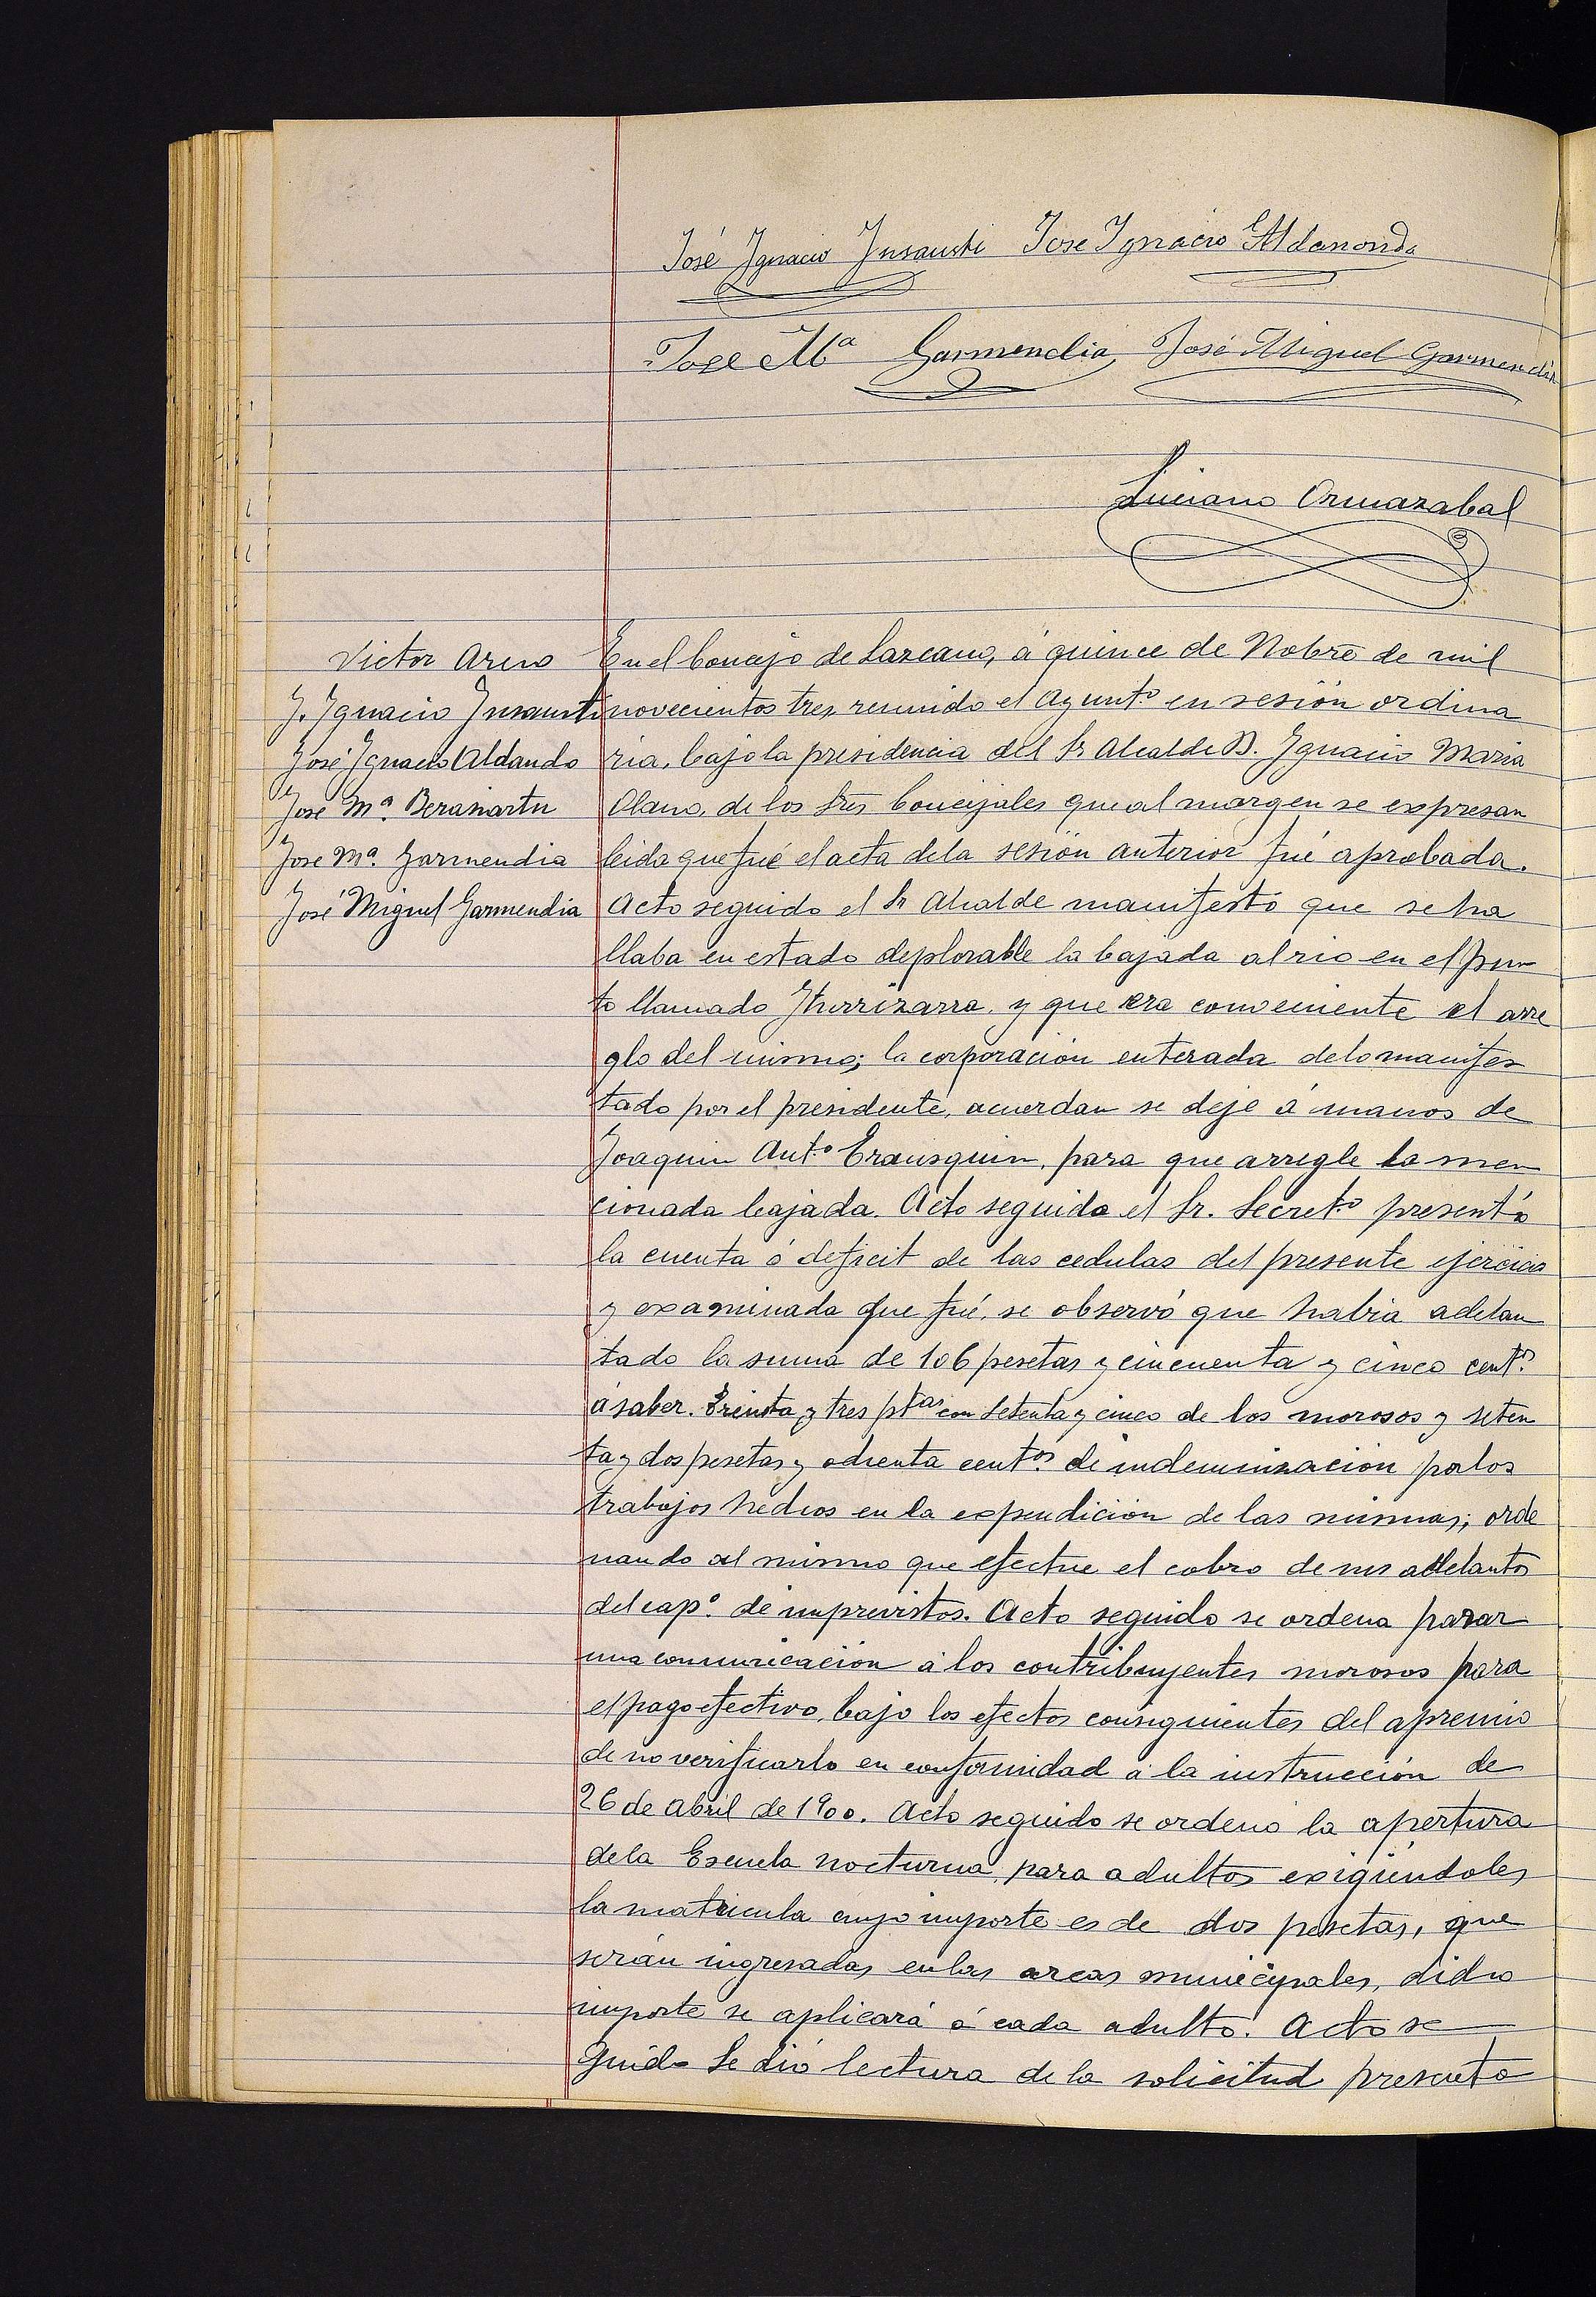 José Ignacio Insausti Jose Ignacio Aldanondo
Jose Mª Garmendia José Miguel Garmendia
Luciano Ormazabal
Victor Arino
J. Ignacio Insausti
José Ignacio Aldando
José Mª. Berasiartu
Jose Mª. Garmendia
José Miguel Garmendia
En el Concejo de Lazcano, á quince de Nobre de mil
novecientos tres, reunido el Ayunt.º en sesión ordina
ria, bajo la presidencia del Sr Alcalde D. Ignacio Maria
Olano, de los Sres Concejales que al margen se expresan
leida que fué el acta de la sesión anterior fué aprobada.
Acto seguido el Sr Alcalde manifestó que se ha
llaba en estado deplorable la bajada al rio en el pun
to llamado Iturrizarra, y que era conveniente el arre
glo del mismo; la corporación enterada de lo manifes
tado por el presidente, acuerdan se deje á manos de
Joaquin Ant.º Erausquin, para que arregle la men
cionada bajada. Acto seguido el Sr. Secret.º presentó
la cuenta ó deficit de las cedulas del presente ejercicio
y examinada que fué, se observó que habia adelan
tado la suma de 106 pesetas y cincuenta y cinco cent.s
á saber. Treinta y tres ptas con setenta y cinco de los morosos y seten
ta y dos pesetas y ochenta cent.os de indemnización por los
trabajos hechos en la expendición de las mismas; orde
nando al mismo que efectue el cobro de sus adelantos
del cap.º de imprevistos. Acto seguido se ordena pasar
una comunicación á los contribuyentes morosos para
el pago efectivo, bajo los efectos consiguientes del apremio
de no verificarlo en conformidad á la instrucción de
26 de Abril de 1900. Acto seguido se ordenó la apertura
de la Escuela nocturna, para adultos exigiendoles
la matricula cuyo importe es de dos pesetas, que
serán ingresadas en las arcas municipales, dicho
importe se aplicará á cada adulto. Acto se
guido se dió lectura de la solicitud presenta